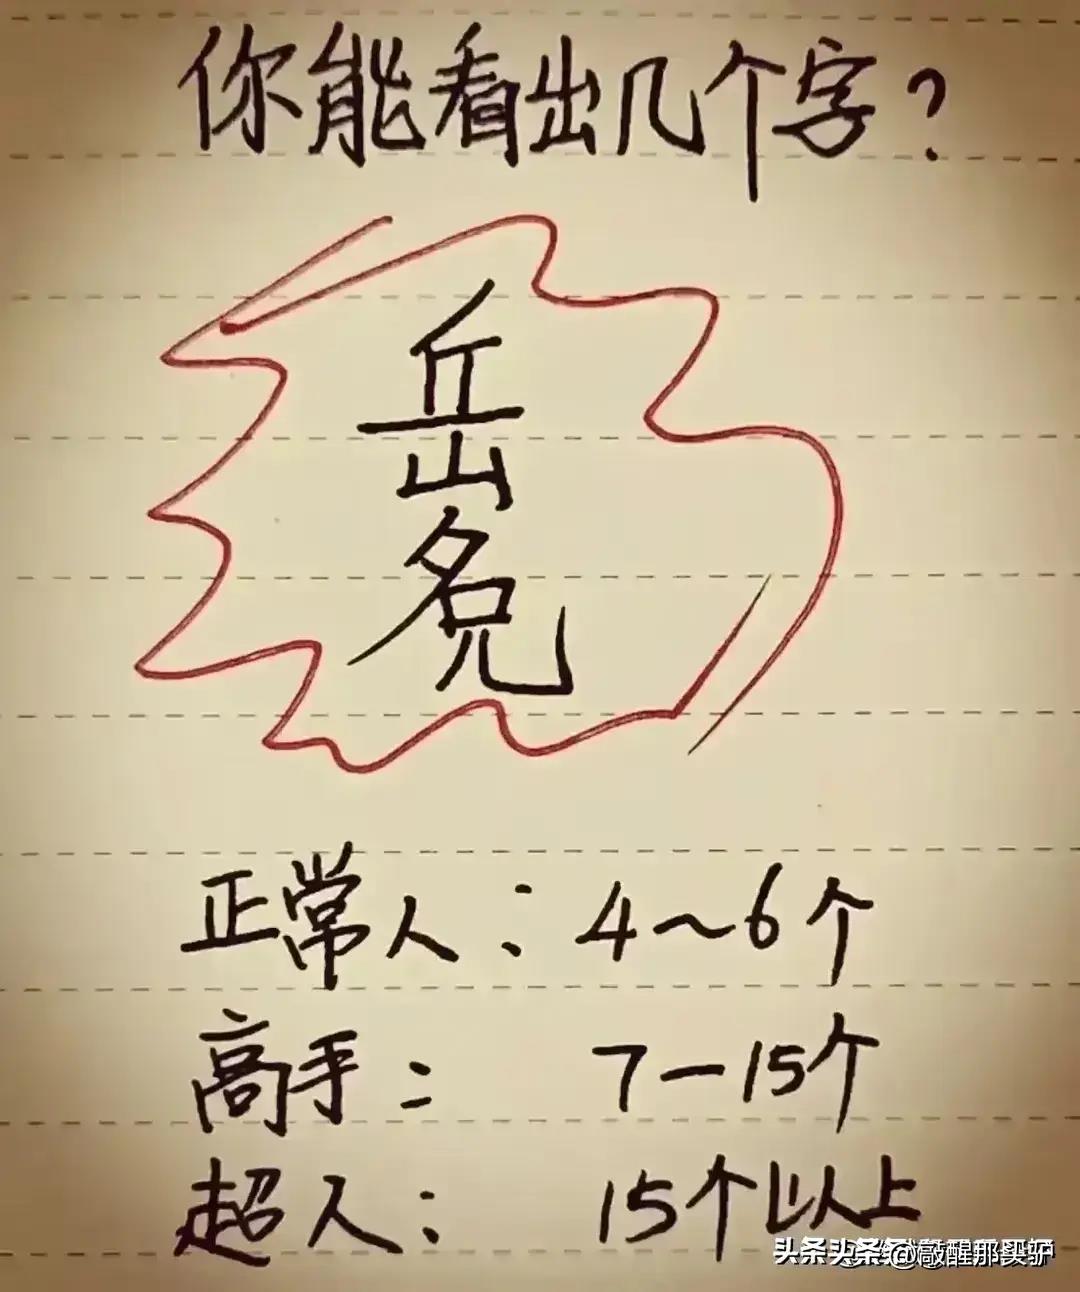 你能看出几个字?
岳
名
兄
正常人: 4~6个
高手: 7—15个
超人: 15个以上
@敲醒那头驴